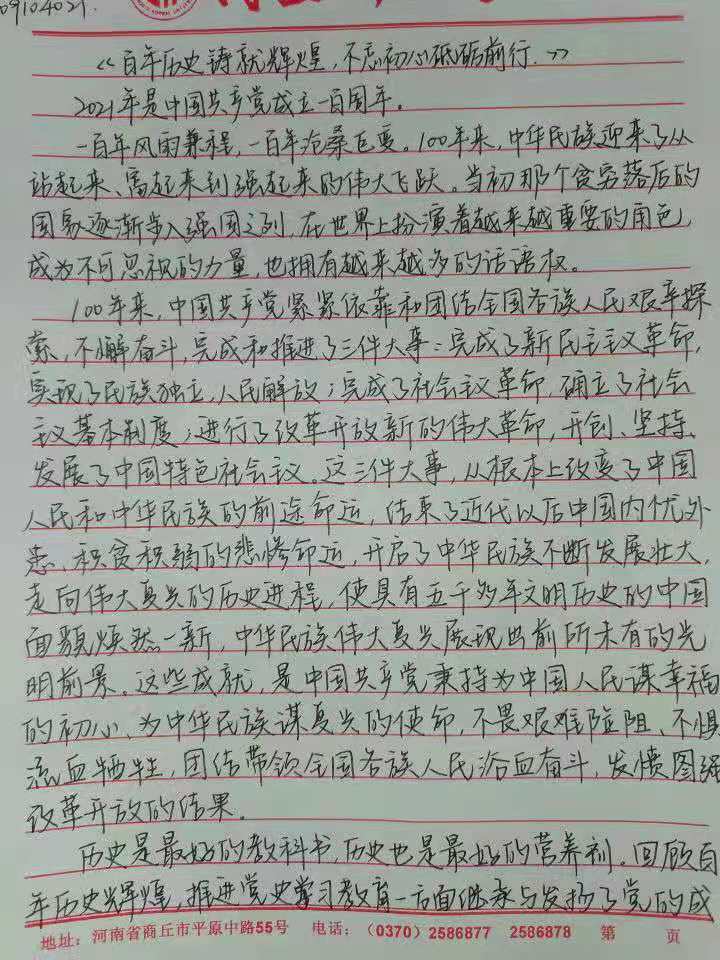 09104021.
《百年历史铸就辉煌，不忘初心砥砺前行.》
2021年是中国共产党成立一百周年。
一百年风雨兼程，一百年沧桑巨变。100年来，中华民族迎来了从
站起来、富起来到强起来的伟大飞跃。当初那个贫穷落后的
国家逐渐步入强国之列，在世界上扮演着越来越重要的角色，
成为不可忽视的力量，也拥有越来越多的话语权。
100年来，中国共产党紧紧依靠和团结全国各族人民艰辛探
索，不懈奋斗，完成和推进了三件大事：完成了新民主主义革命，
实现了民族独立，人民解放；完成了社会主义革命，确立了社会
主义基本制度；进行了改革开放新的伟大革命，开创、坚持、
发展了中国特色社会主义。这三件大事，从根本上改变了中国
人民和中华民族的前途命运，结束了近代以后中国内忧外
患、积贫积弱的悲惨命运，开启了中华民族不断发展壮大，
走向伟大复兴的历史进程，使具有五千多年文明历史的中国
面貌焕然一新，中华民族伟大复兴展现出前所未有的光
明前景。这些成就，是中国共产党秉持为中国人民谋幸福
的初心、为中华民族谋复兴的使命，不畏艰难险阻、不惧
流血牺牲，团结带领全国各族人民浴血奋斗，发愤图强
改革开放的结果。
历史是最好的教科书，历史也是最好的营养剂。回顾百
年历史辉煌，推进党史学习教育一方面继承与发扬了党的成
地址：河南省商丘市平原中路55号 电话：（0370）2586877 2586878 第 页